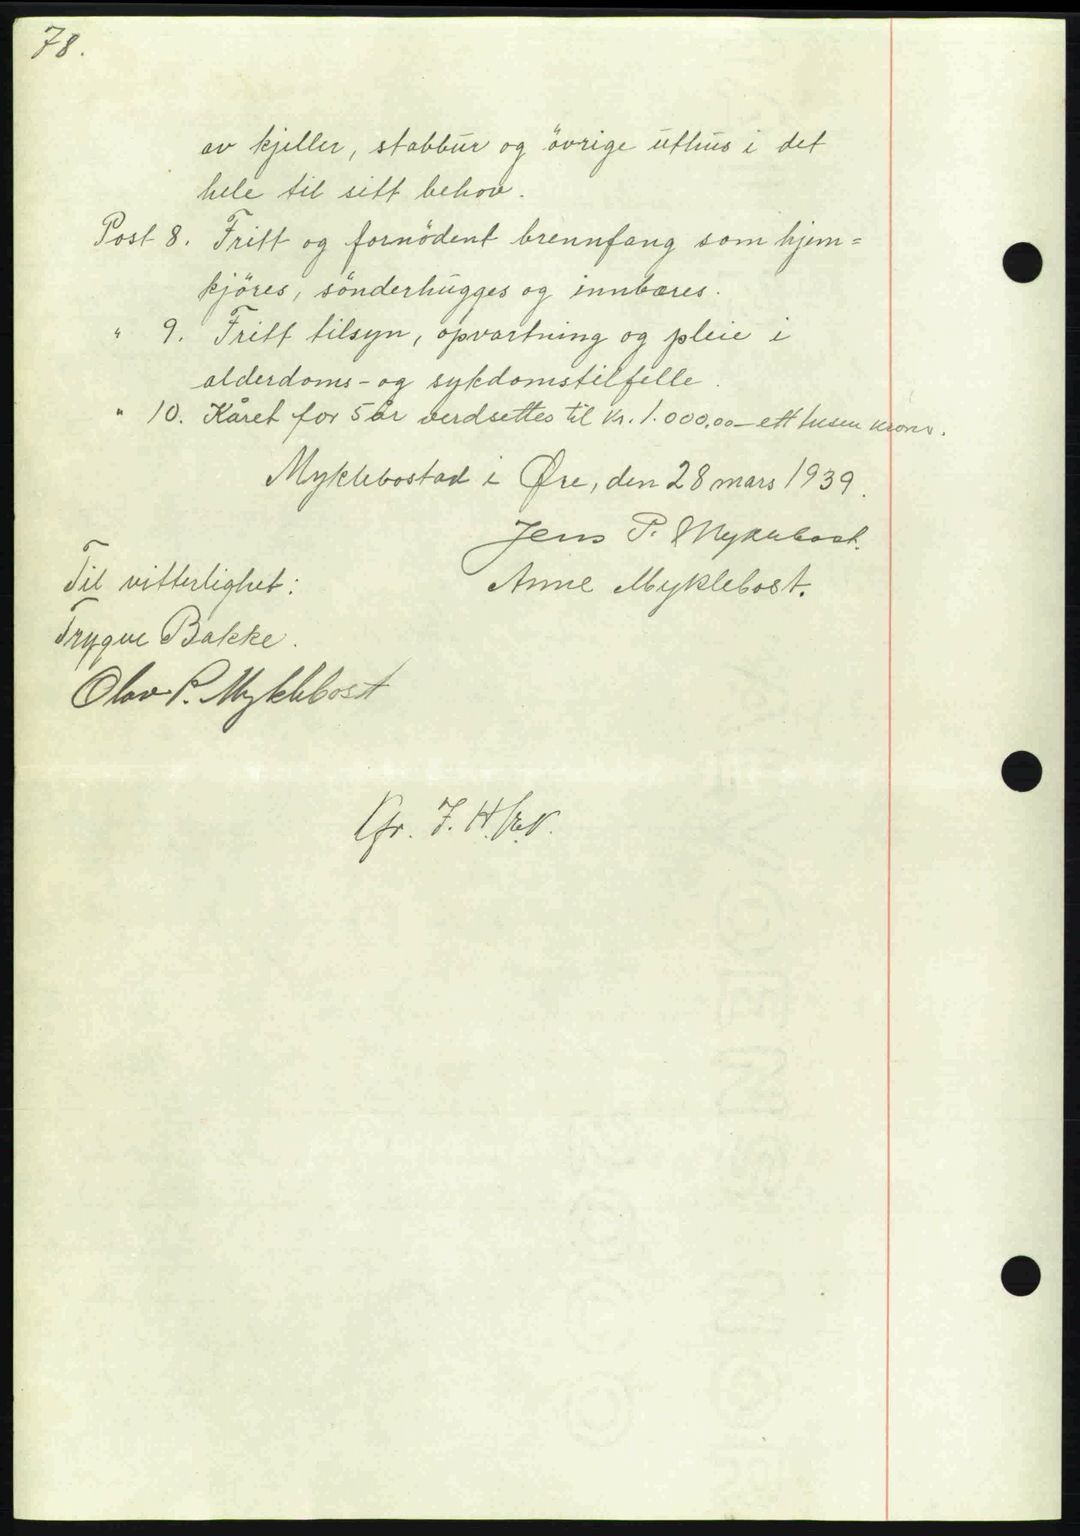 78.
av kjeller, stabbur og övrige uthus i det
hele til sitt behov.
Post 8. Fritt og fornödent brennfang som hjem=
kjöres, sönderhugges og innbæres.
" 9. Fritt tilsyn, opvartning og pleie i
alderdoms- og sykdomstilfelle.
" 10. Kåret for 5 år verdsettes til kr. 1.000,00 – ett tusen kroner.
Myklebostad i Øre, den 28 mars 1939.
Jens P. Myklebost.
Til vitterlighet:
Anne Myklebost.
Trygve Bakke.
Olav P. Myklebost
Kfr. J. H.